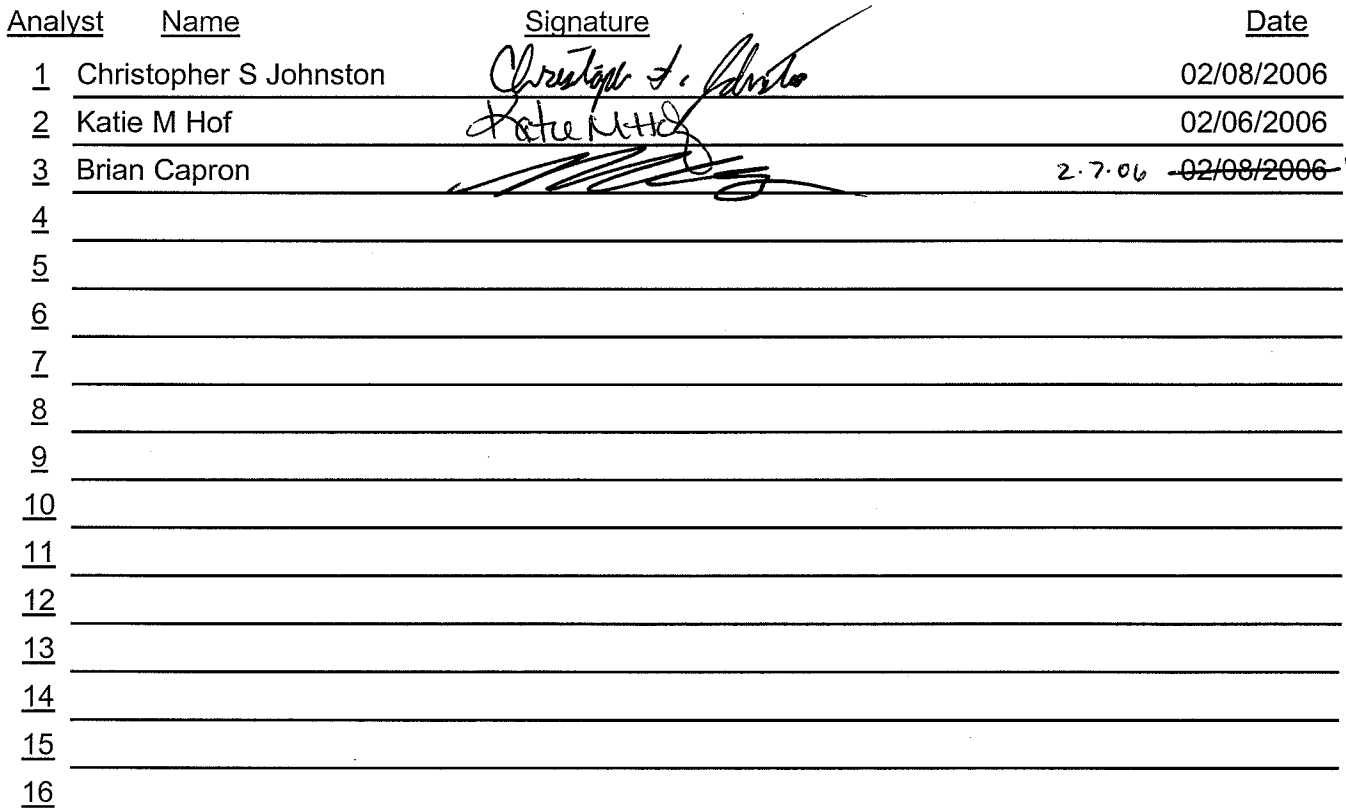 Analyst Name Signature Date
1 Christopher S Johnston Christoph S. Johnston 02/08/2006
2 Katie M Hof Katie M Hof 02/06/2006
3 Brian Capron 2.7.06 02/08/2006
4
5
6
7
8
9
10
11
12
13
14
15
16